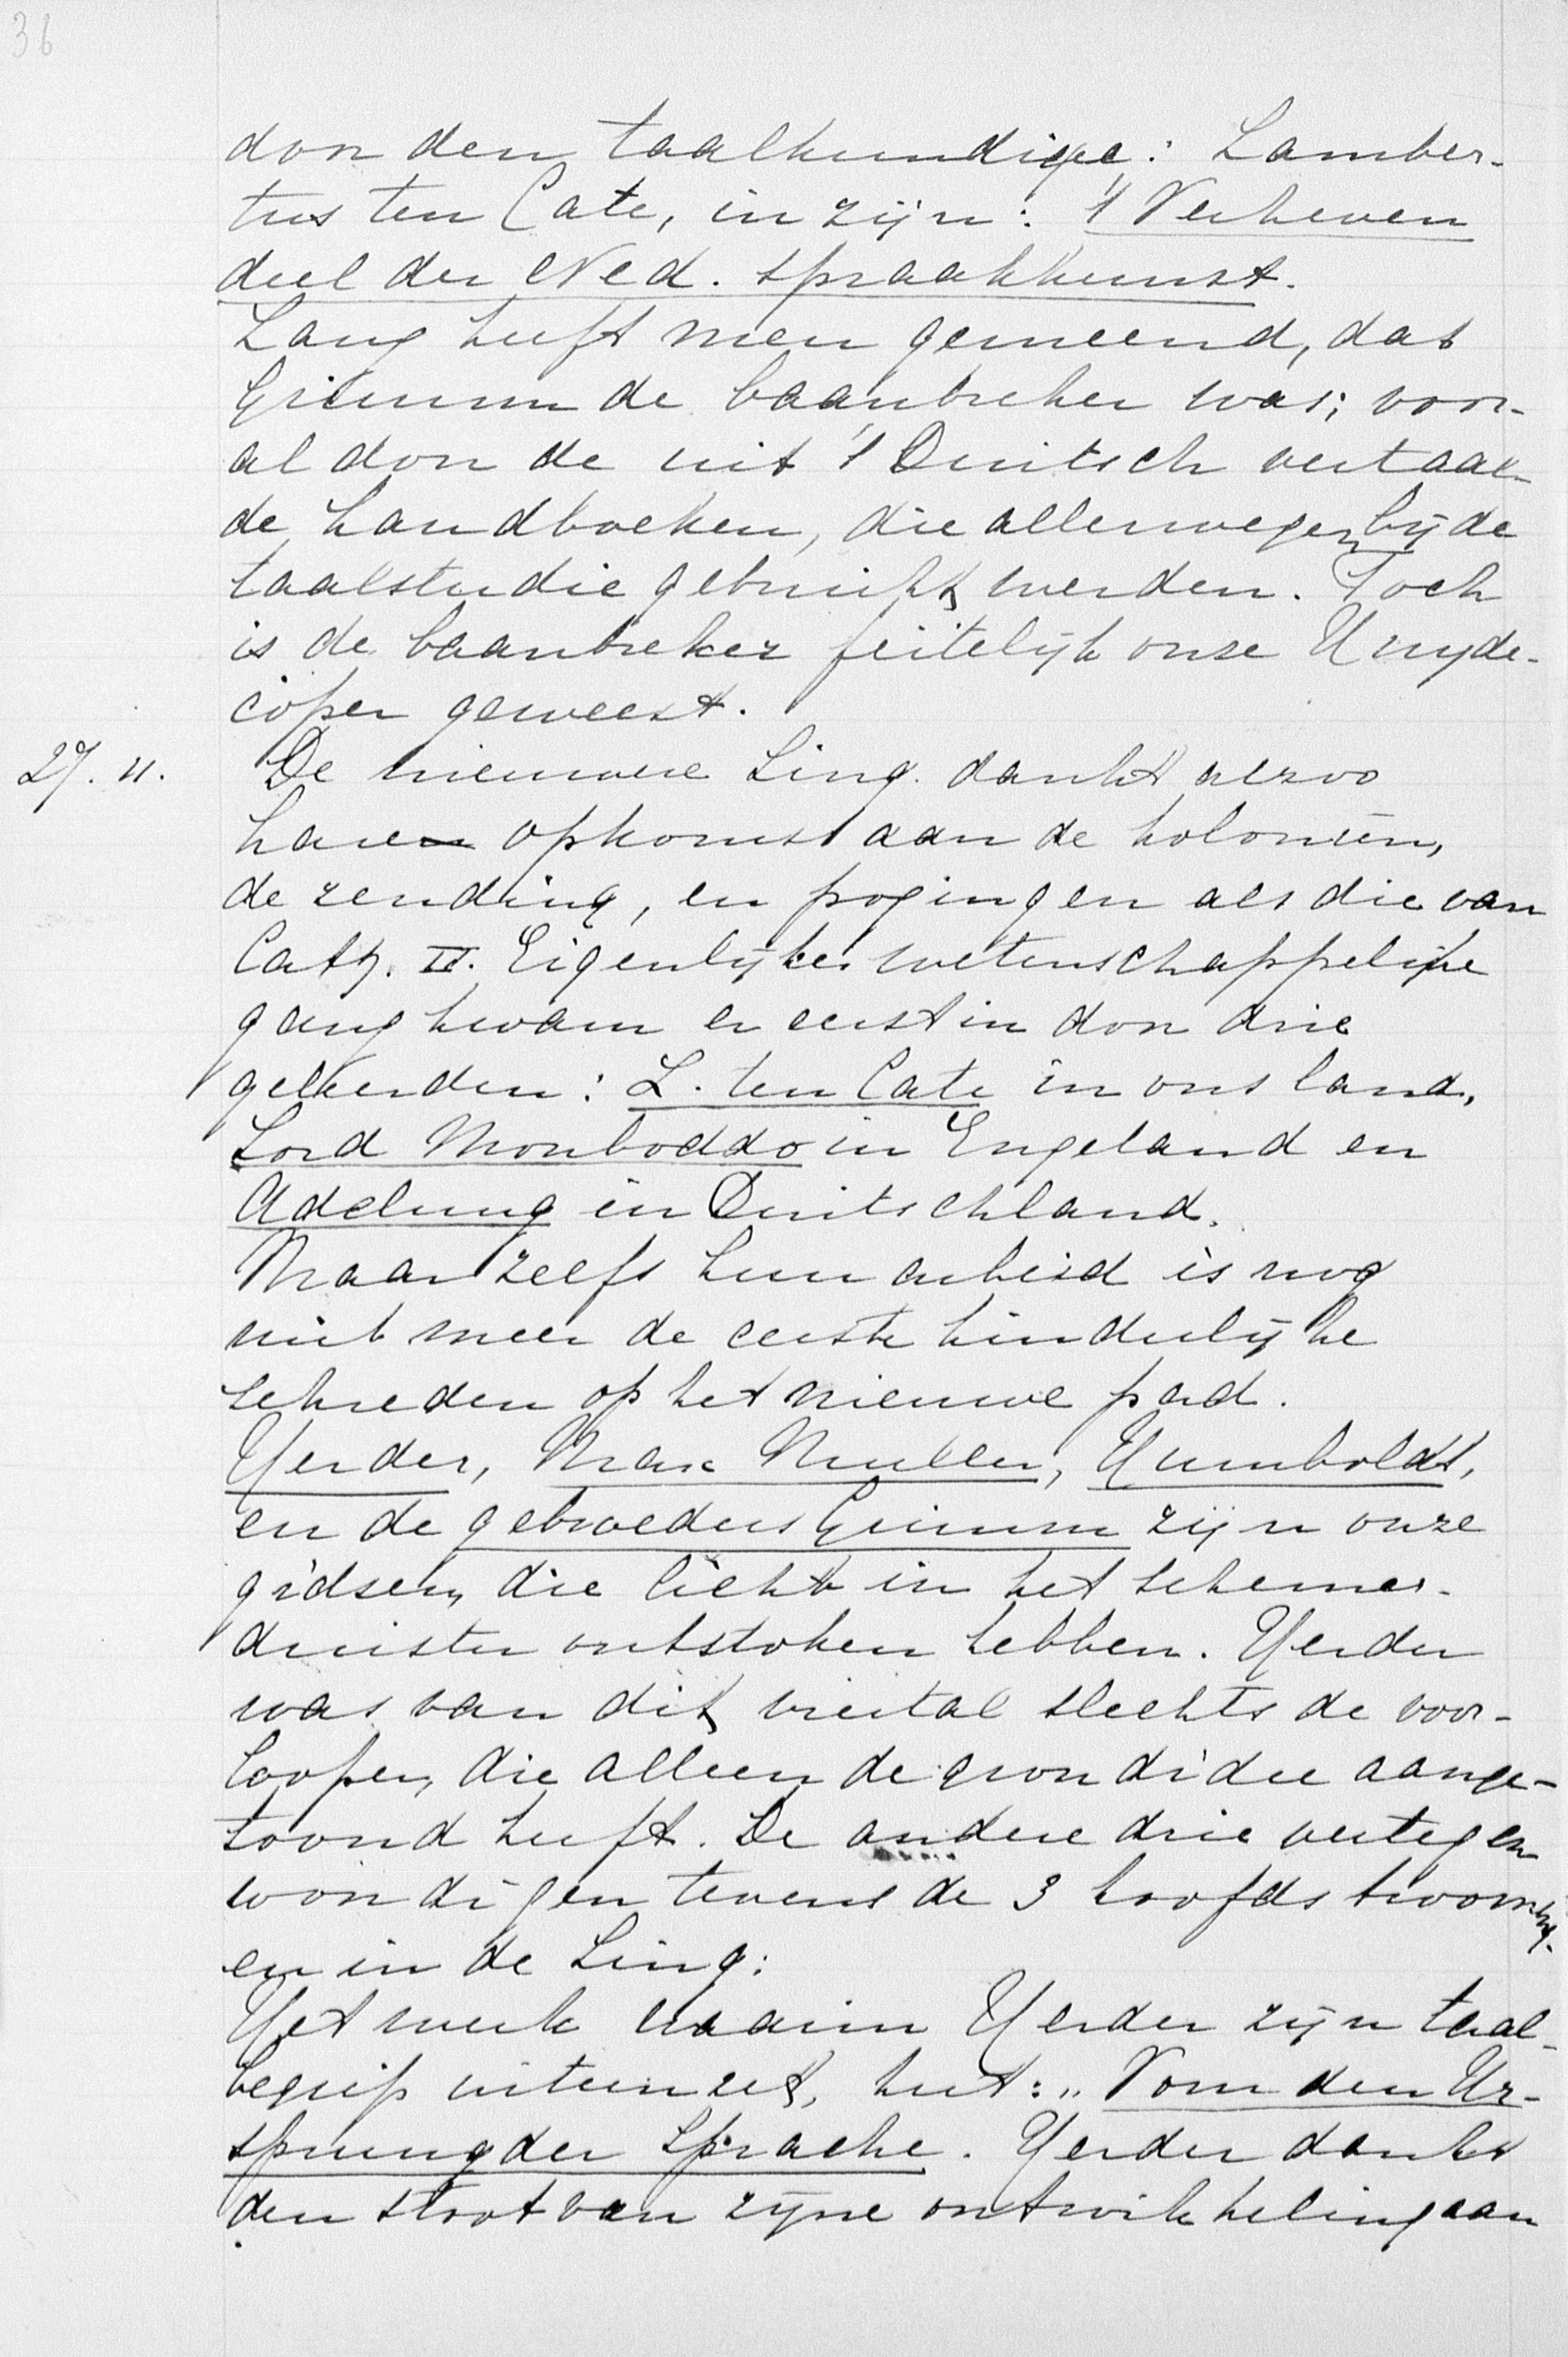 36
door den taalkundige: Lamber-
tus ten Cate, in zijn: 't Verheven
deel der Ned. spraakkunst.
Lang heeft men gemeend, dat
Grimm de baanbreker was; voor-
al door de uit 't Duitsch vertaal-
de handboeken, die allerwegen bij de
taalstudie gebruikt werden. Toch
is de baanbreker feitelijk onze Huyde-
coper geweest.
27. 11. De nieuwere Ling. dankt alzoo
hare opkomst aan de koloniën,
de zending, en pogingen als die van
Cath. II. Eigenlijke wetenschappelijke
gang kwam er eerst in door drie
geleerden: L. ten Cate in ons land,
Lord Monboddo in Engeland en
Adelung in Duitschland.
Maar zelfs hun arbeid is nog
niet meer de eerste kinderlijke
schreden op het nieuwe pad.
Herder, Max Muller, Humboldt,
en de gebroeders Grimm zijn onze
gidsen, die licht in het schemer-
duister ontstoken hebben. Herder
was van dit viertal slechts de voor-
looper, die alleen de grondidee aange-
toond heeft. De andere drie vertegen
woordigen tevens de 3 hoofdstroomingen
en in de Ling:
Het werk waarin Herder zijn taal-
begrip uiteenzet, heet: „Vom den Ur-
sprung der Sprache. Herder dankt
den stoot van zijne ontwikkeling aan